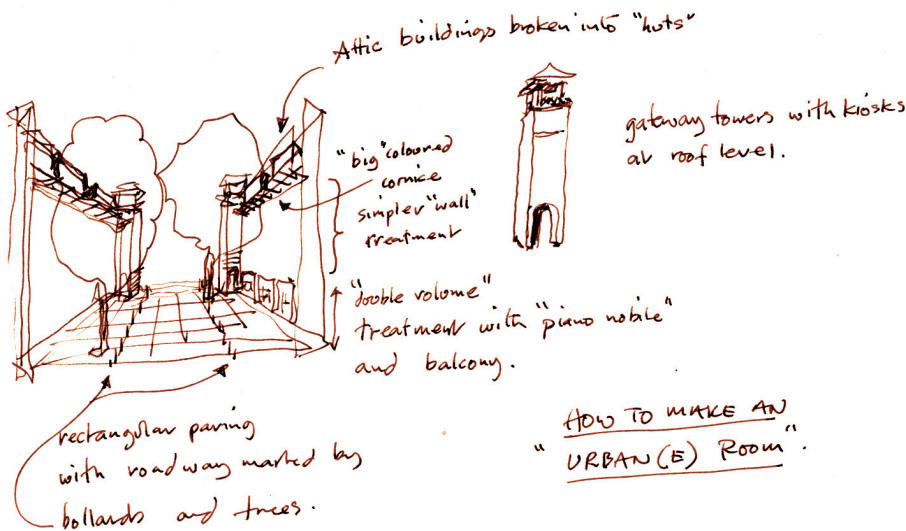 Attic buildings broken into "huts"
gateway towers with kiosks
at roof level.
"big" coloured
cornice
simpler "wall"
treatment
"double volume"
treatment with "piano nobile"
and balcony.
rectangular paving
with roadway marked by
bollards and trees.
HOW TO MAKE AN
"URBAN(E) ROOM".